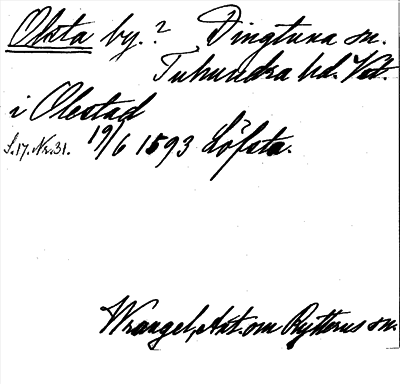 Okta by.? Dingtuna sn.
Tuhundra hd. Vst.
i Olestad
S. 17. Nr. 31. 19/6 1593 Löfsta.
Wrangel, Ant. om Rytterns sn.